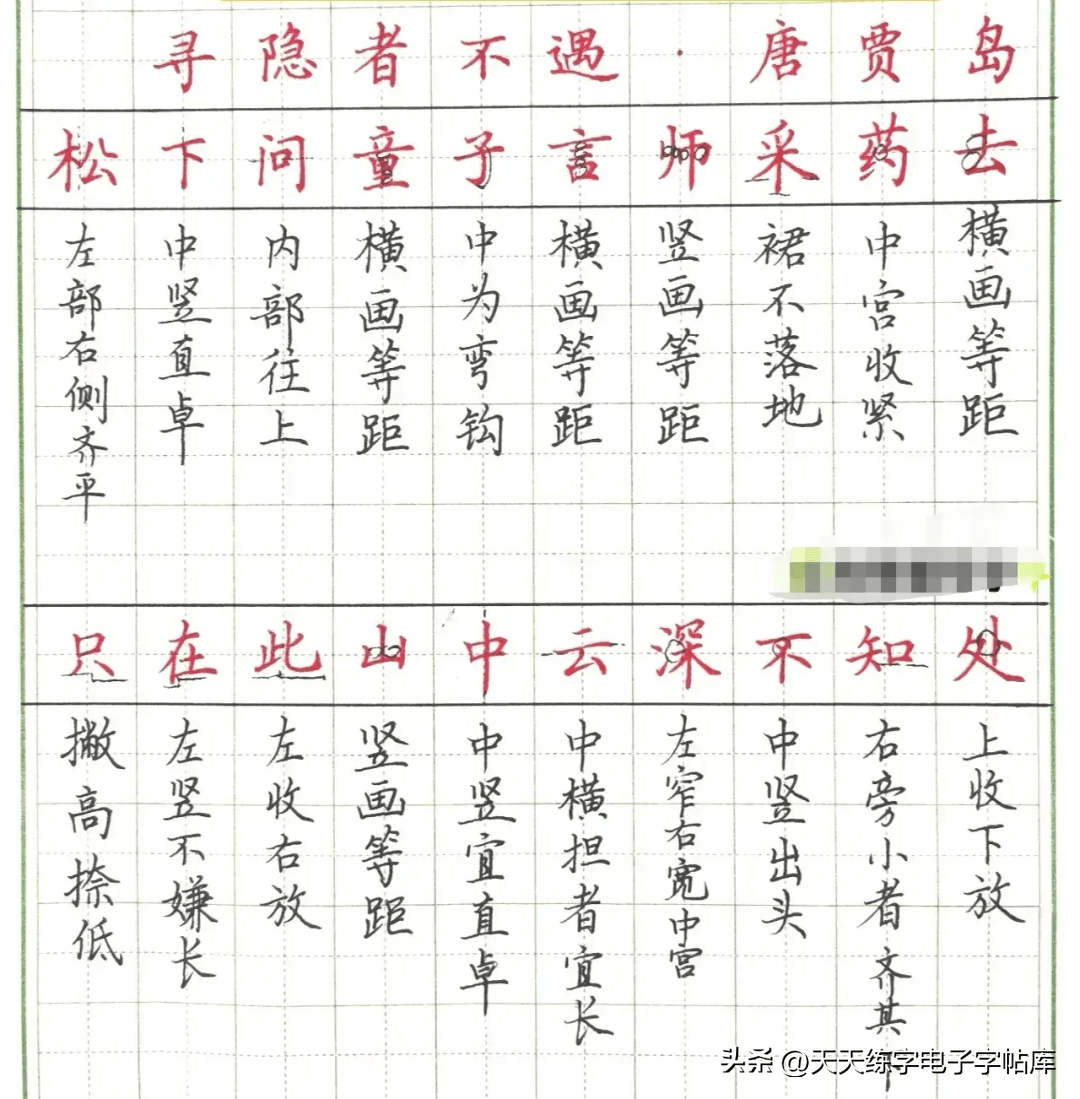 寻隐者不遇·唐贾岛
松下问童子言师采药去
左部右侧齐平
中竖直卓
内部往上
横画等距
中为弯钩
横画等距
竖画等距
裙不落地
中宫收紧
横画等距
只在此山中云深不知处
撇高捺低
左竖不嫌长
左收右放
竖画等距
中竖宜直卓
中横担者宜长
左窄右宽中宫
中竖出头
右旁小者齐其下
上收下放
头条 @天天练字电子字帖库